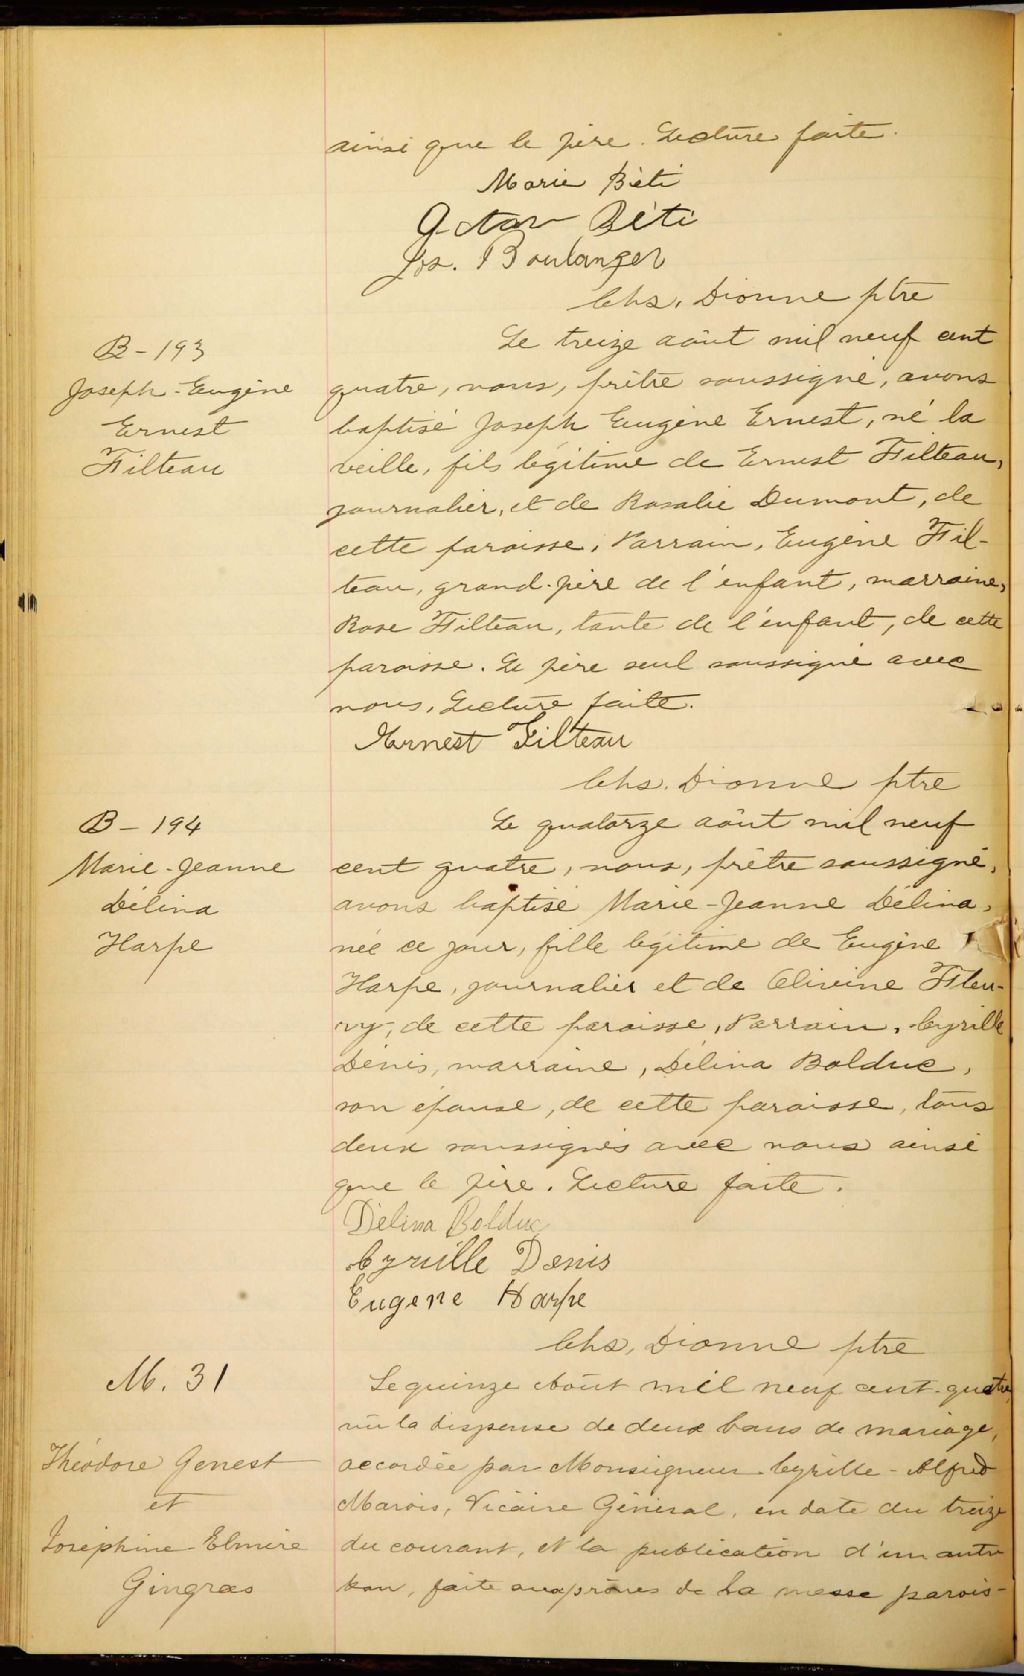 ainsi que le père. Lecture faite.
Marie Bêti
Octav Bêti
Jos. Boulanger
Chs. Dionne ptre
B-193
Joseph-Eugène
Ernest
Filteau
Le treize août mil neuf cent
quatre, nous, prêtre soussigné, avons
baptisé Joseph Eugène Ernest, né la
veille, fils légitime de Ernest Filteau,
journalier, et de Rosalie Dumont, de
cette paroisse. Parrain, Eugène Fil-
teau, grand-père de l'enfant, marraine,
Rose Filteau, tante de l'enfant, de cette
paroisse. Le père seul soussigné avec
nous. Lecture faite.
Ernest Filteau
Chs. Dionne ptre
B-194
Marie-Jeanne
Délina
Harpe
Le quatorze août mil neuf
cent quatre, nous, prêtre soussigné,
avons baptisé Marie-Jeanne Délina,
née ce jour, fille légitime de Eugène
Harpe, journalier et de Olivine Fleu-
ry, de cette paroisse. Parrain, Cyrille
Dénis, marraine, Délina Bolduc,
son épouse, de cette paroisse, tous
deux soussignés avec nous ainsi
que le père. Lecture faite.
Délina Bolduc
Cyrille Denis
Eugene Harpe
Chs. Dionne ptre
M. 31
Théodore Genest
et
Joséphine-Elmire
Gingras
Le quinze Août mil neuf cent-quatre,
vu la dispense de deux bans de mariage,
accordée par Monseigneur Cyrille-Alfred
Marois, Vicaire Général, en date du treize
du courant, et la publication d'un autre
ban, faite aux prônes de la messe parois-